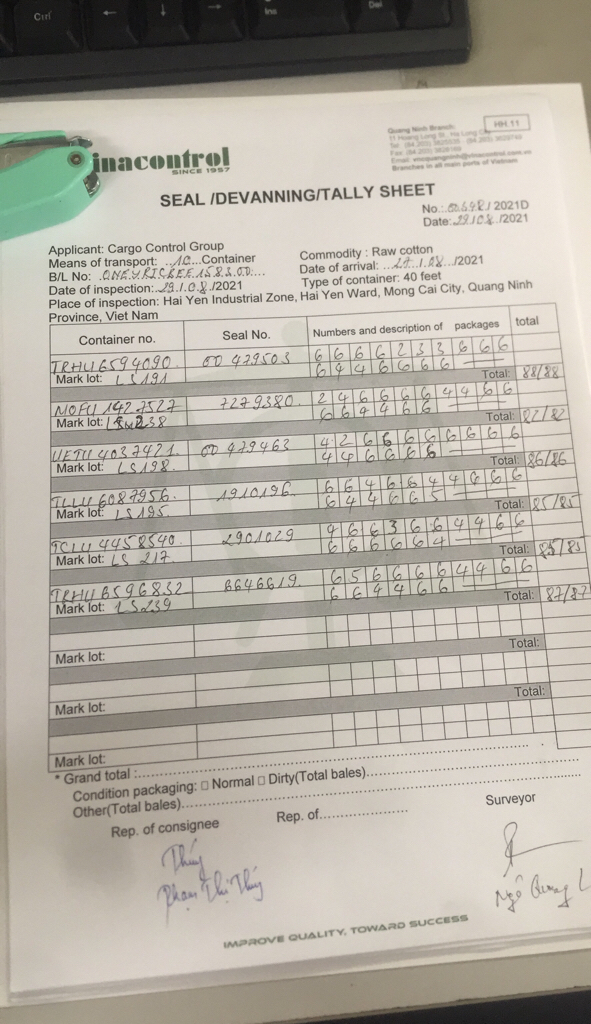 Ctrl
Ins
Del
HH.11
Quang Ninh Branch:
Branches in all main ports of Vietnam
inacontrol
SINCE 1957
SEAL /DEVANNING/TALLY SHEET
No.: /2021D
Date: 29/08/2021
Applicant: Cargo Control Group
Commodity : Raw cotton
Means of transport: ..10...Container
Date of arrival: ...27./.08../2021
B/L No:
Type of container: 40 feet
Date of inspection: 29./.0.8./2021
Place of inspection: Hai Yen Industrial Zone, Hai Yen Ward, Mong Cai City, Quang Ninh
Province, Viet Nam
Container no. Seal No. Numbers and description of packages total
TRHU 6594090. 00 479503 6 6 6 6 2 3 3 6 6 6
Mark lot: LS191 Total: 88/88
7279380. 2 4 6 6 6 6 4 4 6 6
6 6 4 4 6 6
Mark lot: Total: 82/82
UETU 4037421. 00 479463 4 2 6 6 6 6 6 6 6 6
4 4 6 6 6 6
Mark lot: LS198. Total: 86/86
1910196. 6 6 4 6 6 4 4 6 6 6
6 4 4 6 6 5
Mark lot: LS195 Total: 85/85
TCLU 4458540. 2901029 4 6 6 3 6 6 4 4 6 6
6 6 6 6 6 4
Mark lot: LS 217 Total:
TRHU 6596832 6646619. 6 5 6 6 6 6 4 4 6 6
6 6 4 4 6 6
Mark lot: LS239 Total: 87/87
Mark lot: Total:
Mark lot: Total:
Mark lot:
* Grand total :
Condition packaging: □ Normal □ Dirty(Total bales)
Other(Total bales)
Rep. of consignee Rep. of Surveyor
Thúy
Phạm Thị Thúy
Ngô Quang L
IMPROVE QUALITY, TOWARD SUCCESS